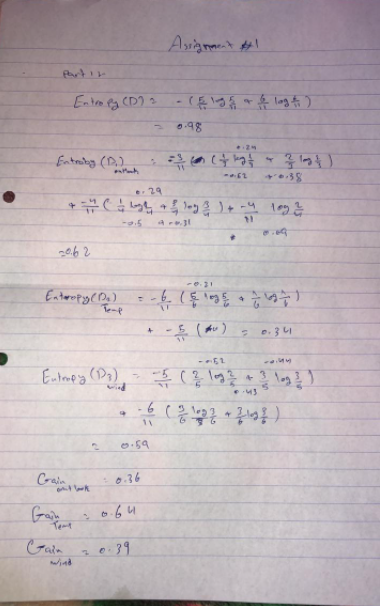 Assignment #1
Part 1:-
Entropy(D) = - (5/11 log 5/11 + 6/11 log 6/11)
= 0.98
0.29
Entropy(D1) outlook = -3/11 (1/3 log 1/3 + 2/3 log 2/3)
-0.52 + -0.38
0.29
+ -4/11 (1/4 log 1/4 + 3/4 log 3/4) + -4/11 log 3/4
-0.5 + -0.31
= 0.62
-0.31
Entropy(D2) Temp = -6/11 (5/6 log 5/6 + 1/6 log 1/6)
+ -5/11 = 0.34
-0.52 -0.44
Entropy(D3) wind = -5/11 (2/5 log 2/5 + 3/5 log 3/5)
0.43
+ -6/11 (3/6 log 3/6 + 3/6 log 3/6)
= 0.59
Gain outlook = 0.36
Gain Temp = 0.64
Gain wind = 0.39